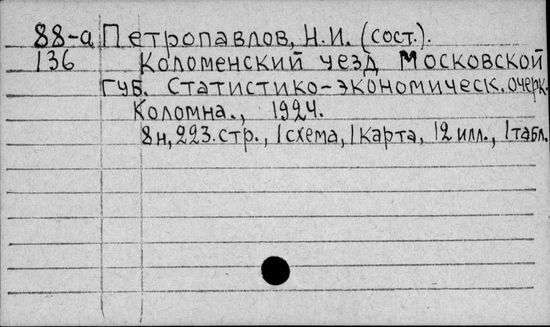 88-а Петропавлов, Н.И. (сост.).
136 Коломенский уезд Московской
губ. Статистико-экономическ. очерк.
Коломна., 1924.
8н, 223. стр., 1 схема, 1 карта, 12 илл., 1 табл.